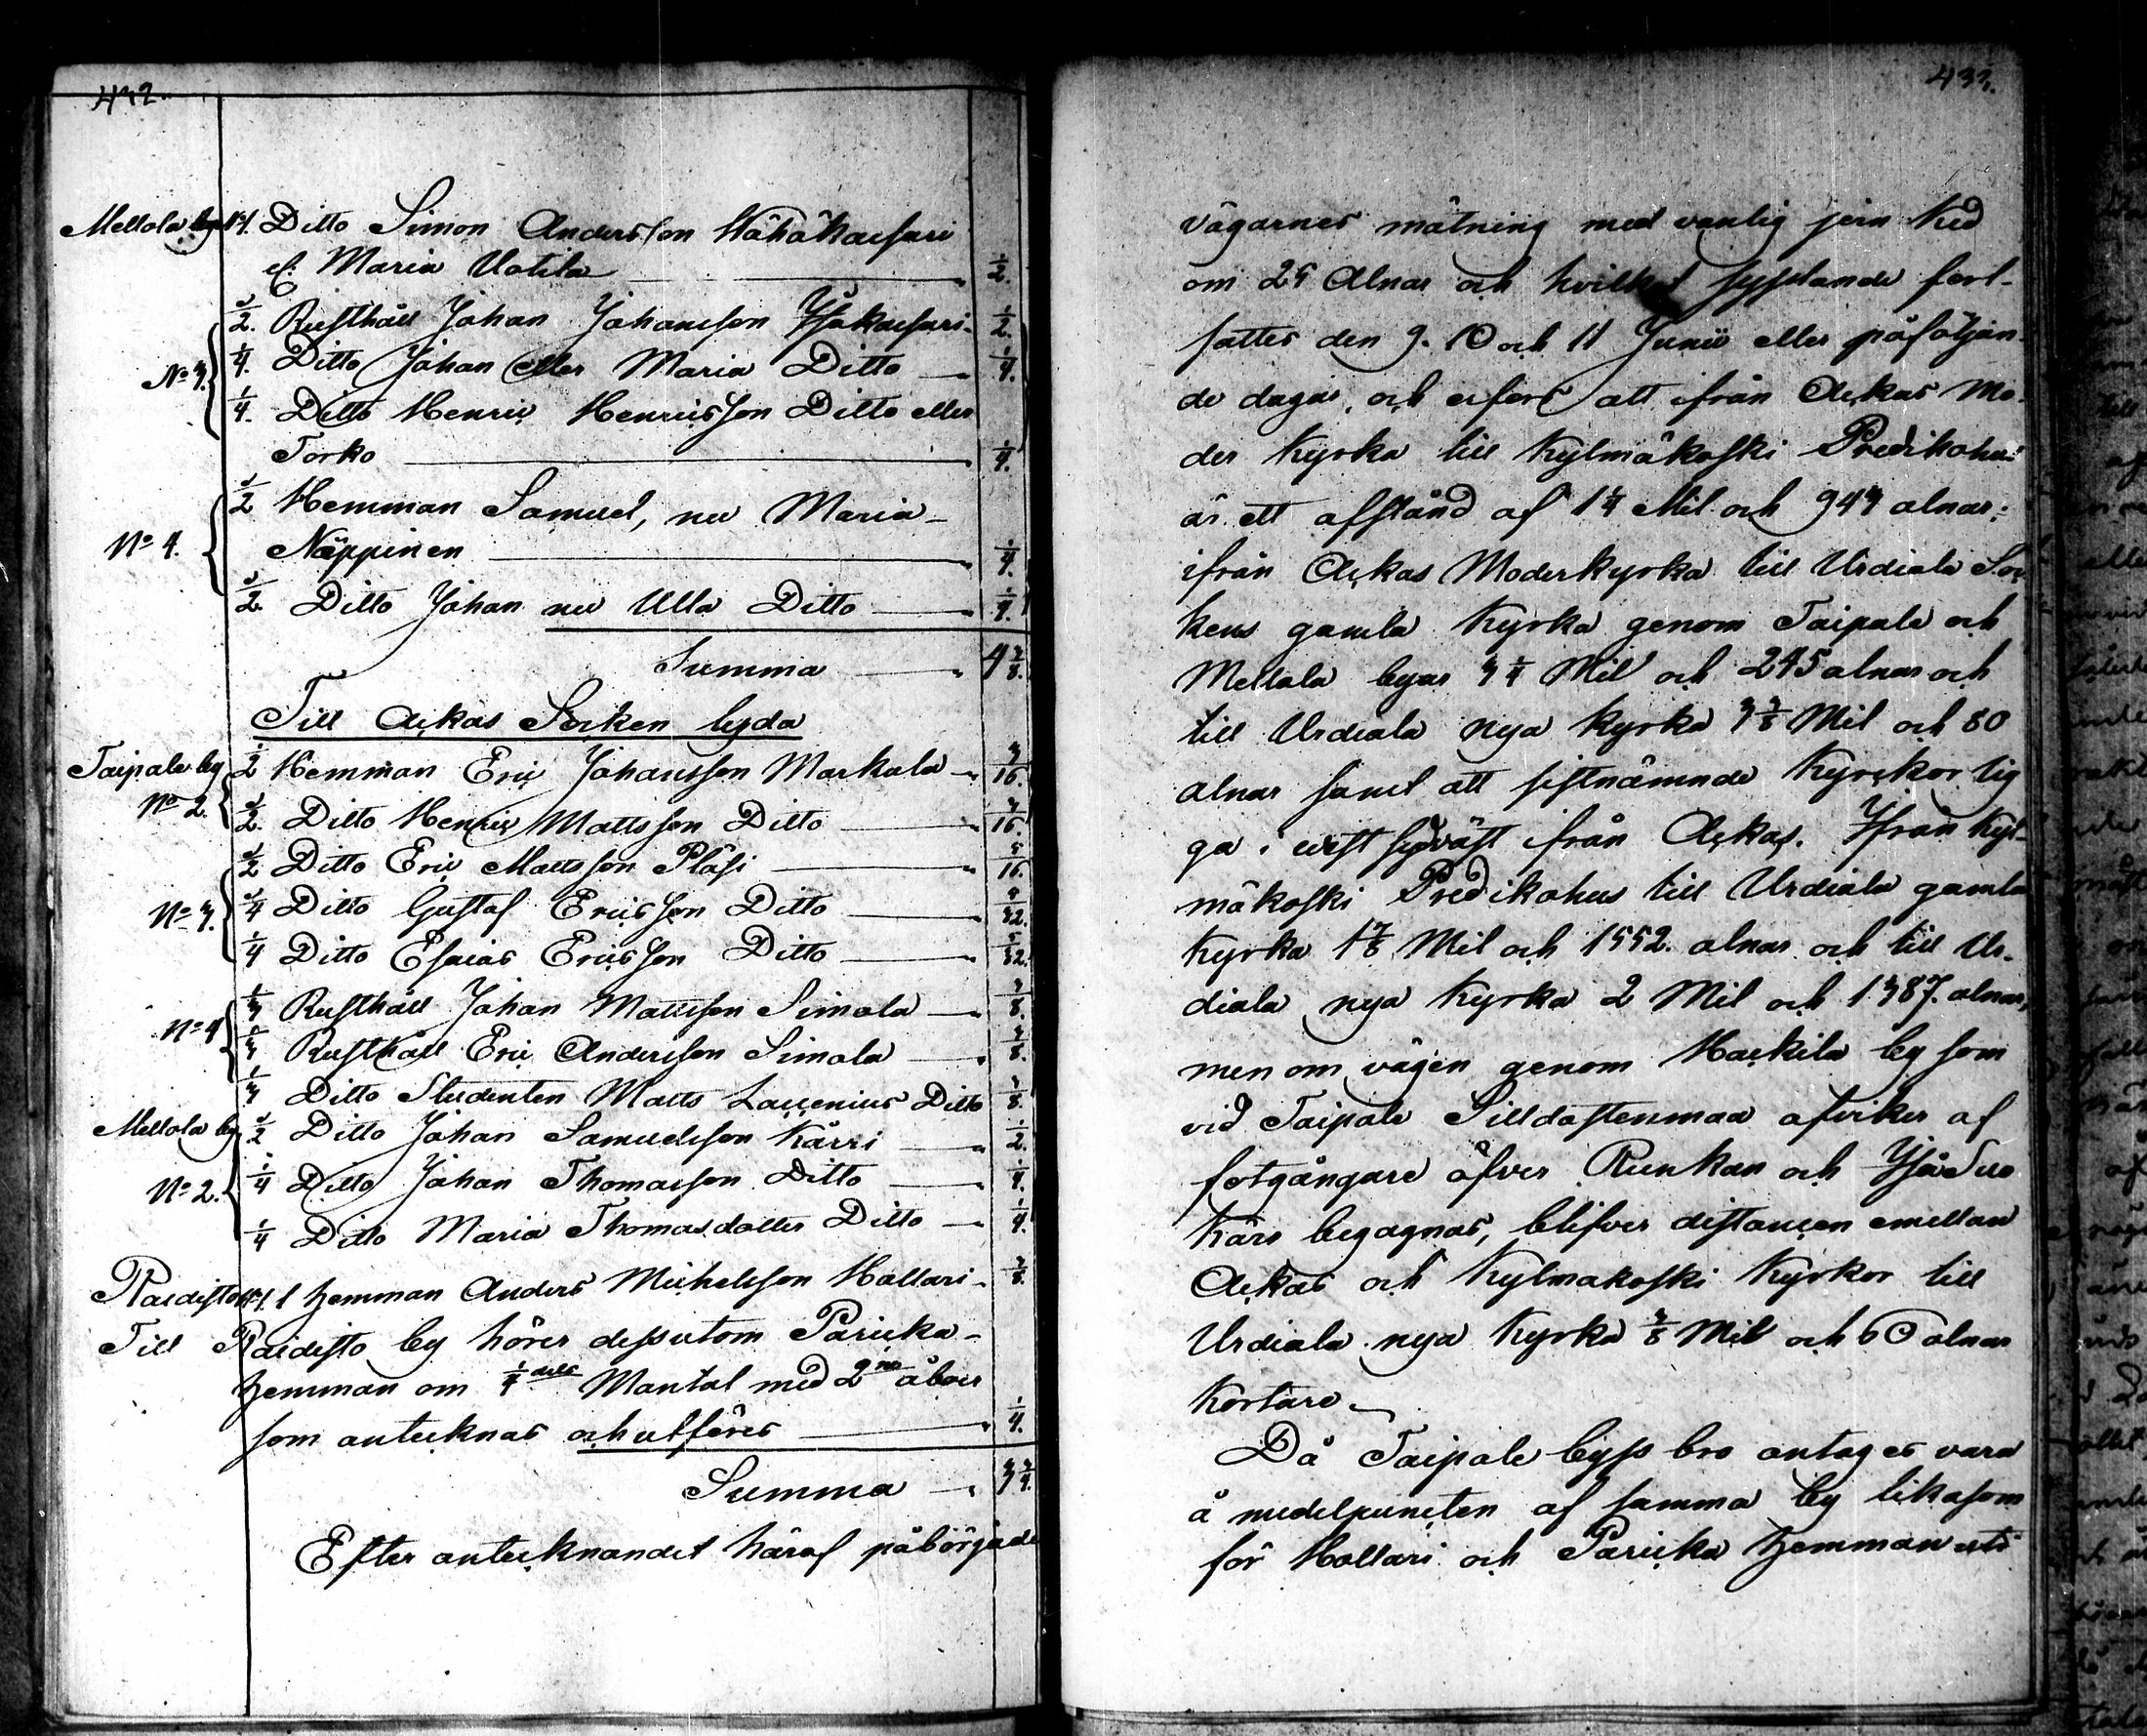 432.
Mellola by N:1. Ditto Simon Andersson Wähäkaesari
ell. Maria Uotila ½.
½. Rusthåll Johan Johansson Isokaesari ½.
N:o 3. ¼. Ditto Johan eller Maria Ditto ¼.
¼. Ditto Henric Henricsson Ditto eller
Torko ¼.
½ Hemman Samuel, nu Maria
N:o 4. Näppinen ¼.
½. Ditto Johan nu Ulla Ditto ¼.
Summa 4 ⅞.
Till Ackas Socken lyda
Taipale by ½ Hemman Eric Johansson Markula 3/16.
N:o 2. ½. Ditto Henric Mattsson Ditto 3/16.
½ Ditto Eric Mattsson Pläsi 5/16.
N:o 3. ¼ Ditto Gustaf Ericsson Ditto 5/32.
¼ Ditto Esaias Ericsson Ditto 5/32.
N:o 4 ⅓ Rusthåll Johan Mattsson Simola ⅜.
⅓ Rusthåll Eric Andersson Simola ⅜.
⅓ Ditto Studenten Matts Laccenius Ditto ⅜.
Mellola by ½ Ditto Johan Samuelsson Kärri ½.
N:o 2. ¼ Ditto Johan Thomasson Ditto ¼.
¼ Ditto Maria Thomasdotter Ditto ¼.
Raidisto N:1. 1 hemman Anders Michelsson Hallari ⅜.
Till Raidisto by hörer dessutom Paricka
hemman om ¼ dels Mantal med 2:ne åboer
som antecknas och utföres ¼.
Summa 3 ¾.
Efter antecknandet häraf påbörjade
433.
vägarnes mätning med vanlig jern ked
om 25 Alnar och hvilket sysslande fort-
sattes den 9. 10 och 11 Junii eller påföljan-
de dagar, och erfors att ifrån Ackas Mo-
der kyrka till Kylmäkoski Predikohus
är ett afstånd af 1¼ Mil och 943 alnar;
ifrån Ackas Moderkyrka till Urdiala Soc
kens gamla Kyrka genom Taipale och
Mellala byar 3¼ Mil och 245 alnar och
till Urdiala nya kyrka 3⅜ Mil och 80
alnar samt att sistnämnde Kyrckor lig
ga i vest sydväst ifrån Ackas. Ifrån Kyl-
mäkoski Predikohus till Urdiala gamla
Kyrka 1⅞ Mil och 1552. alnar och till Ur-
diala nya Kyrka 2 Mil och 1387. alnar,
men om vägen genom Hackila by som
vid Taipale Silldastenmaa afviker af
fotgångare öfver Runkan och Iso Suo
Kärr begagnas, blifver distancen emellan
Ackas och Kylmakoski Kyrkor till
Urdiala nya Kyrka ⅜ Mil och 60 alnar
kortare.
Då Taipale byss bro antages vara
å medelpuncten af samma by likasom
för Hallari och Paricka hemman uti